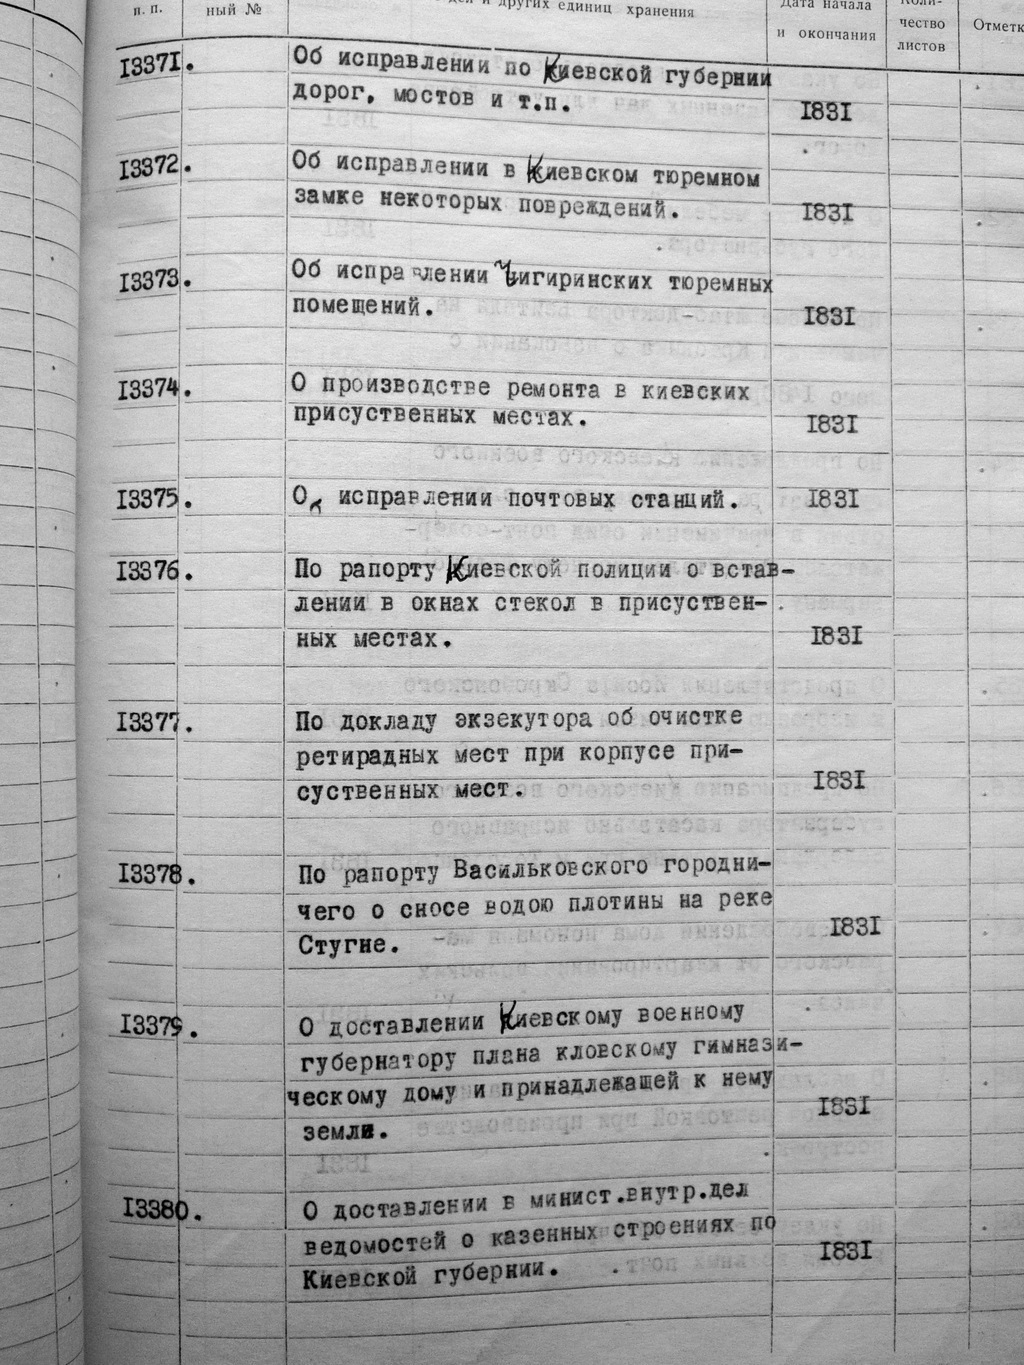 п. п.
ный №
дел и других единиц хранения
Дата начала
и окончания
Коли-
чество
листов
Отметк
13371.
Об исправлении по Киевской губернии
дорог, мостов и т.п.
1831
13372.
Об исправлении в Киевском тюремном
замке некоторых повреждений.
1831
13373.
Об исправлении Чигиринских тюремных
помещений.
1831
13374.
О производстве ремонта в киевских
присуственных местах.
1831
13375.
Об исправлении почтовых станций.
1831
13376.
По рапорту Киевской полиции о встав-
лении в окнах стекол в присуствен-
ных местах.
1831
13377.
По докладу экзекутора об очистке
ретирадных мест при корпусе при-
суственных мест.
1831
13378.
По рапорту Васильковского городни-
чего о сносе водою плотины на реке
Стугне.
1831
13379.
О доставлении Киевскому военному
губернатору плана кловскому гимнази-
ческому дому и принадлежащей к нему
земли.
1831
13380.
О доставлении в минист.внутр.дел
ведомостей о казенных строениях по
Киевской губернии.
1831